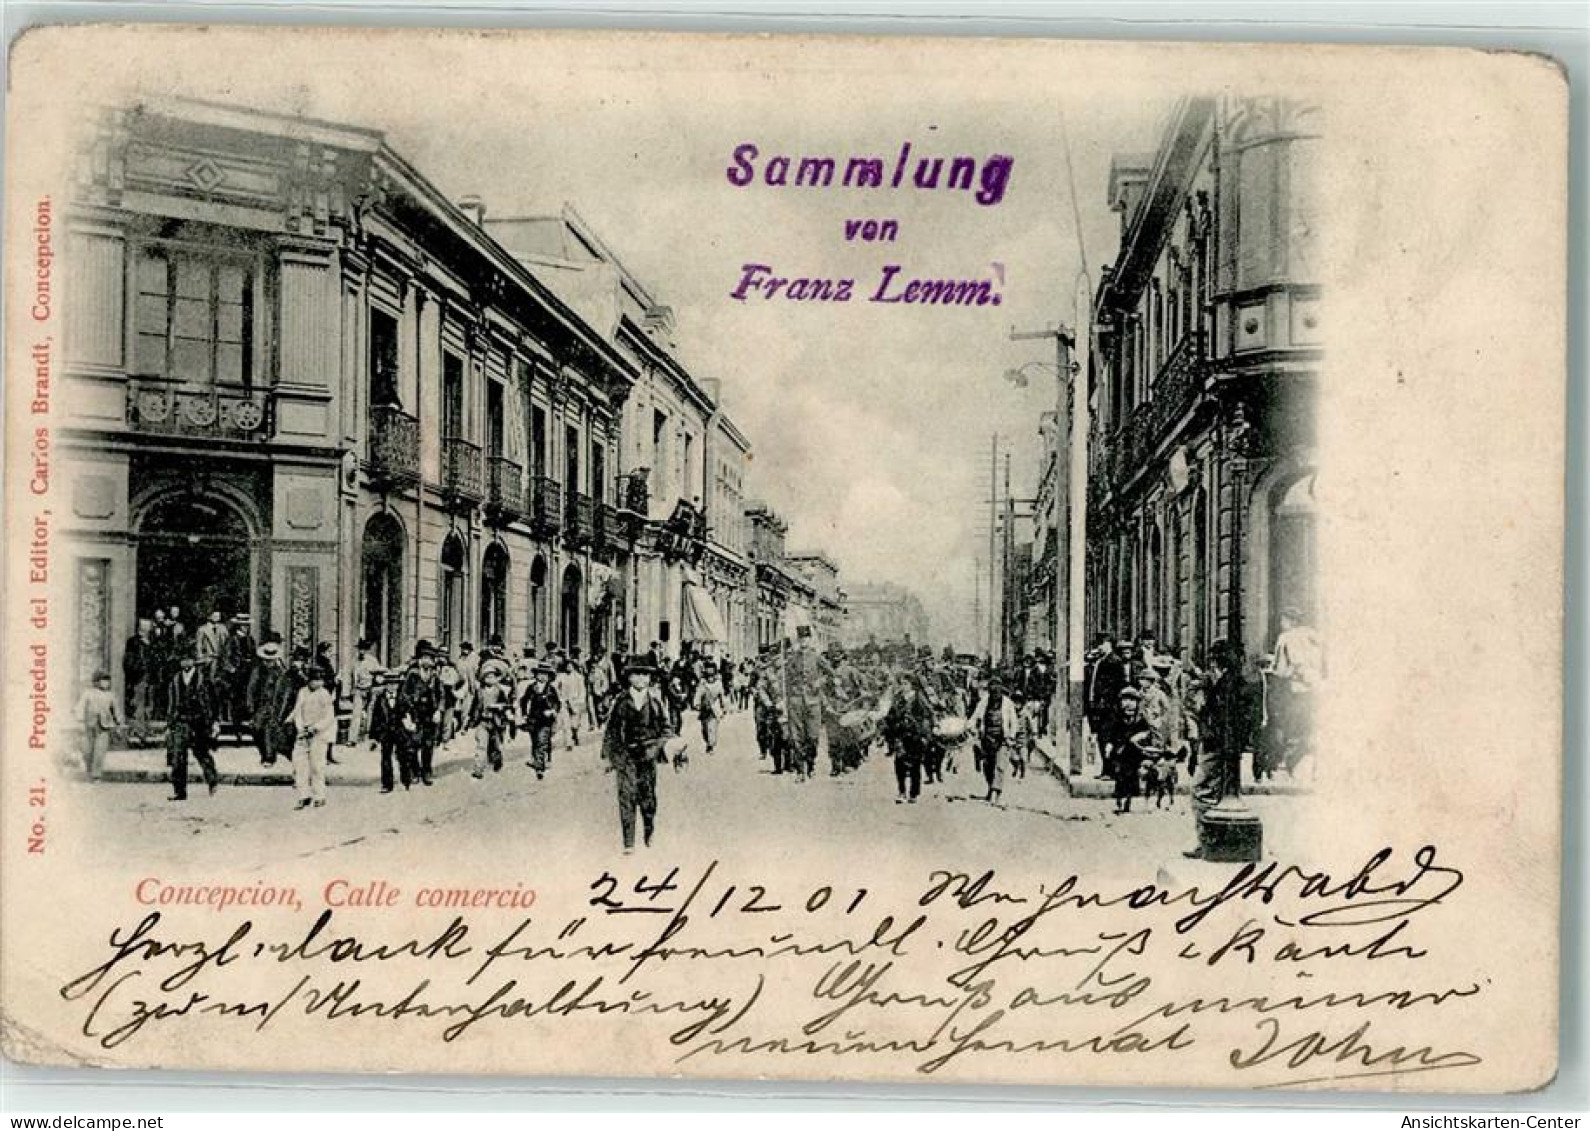 Sammlung
von
Franz Lemm.
No. 21. Propiedad del Editor, Carlos Brandt, Concepcion.
Concepcion, Calle comercio
24/12 01 Weihnachtsabd
herzl. dank für freundl. Gruß & Karte
(zum Unterhaltung) Gruß aus meiner
neuen Heimat John
oldthing
Ansichtskarten-Center